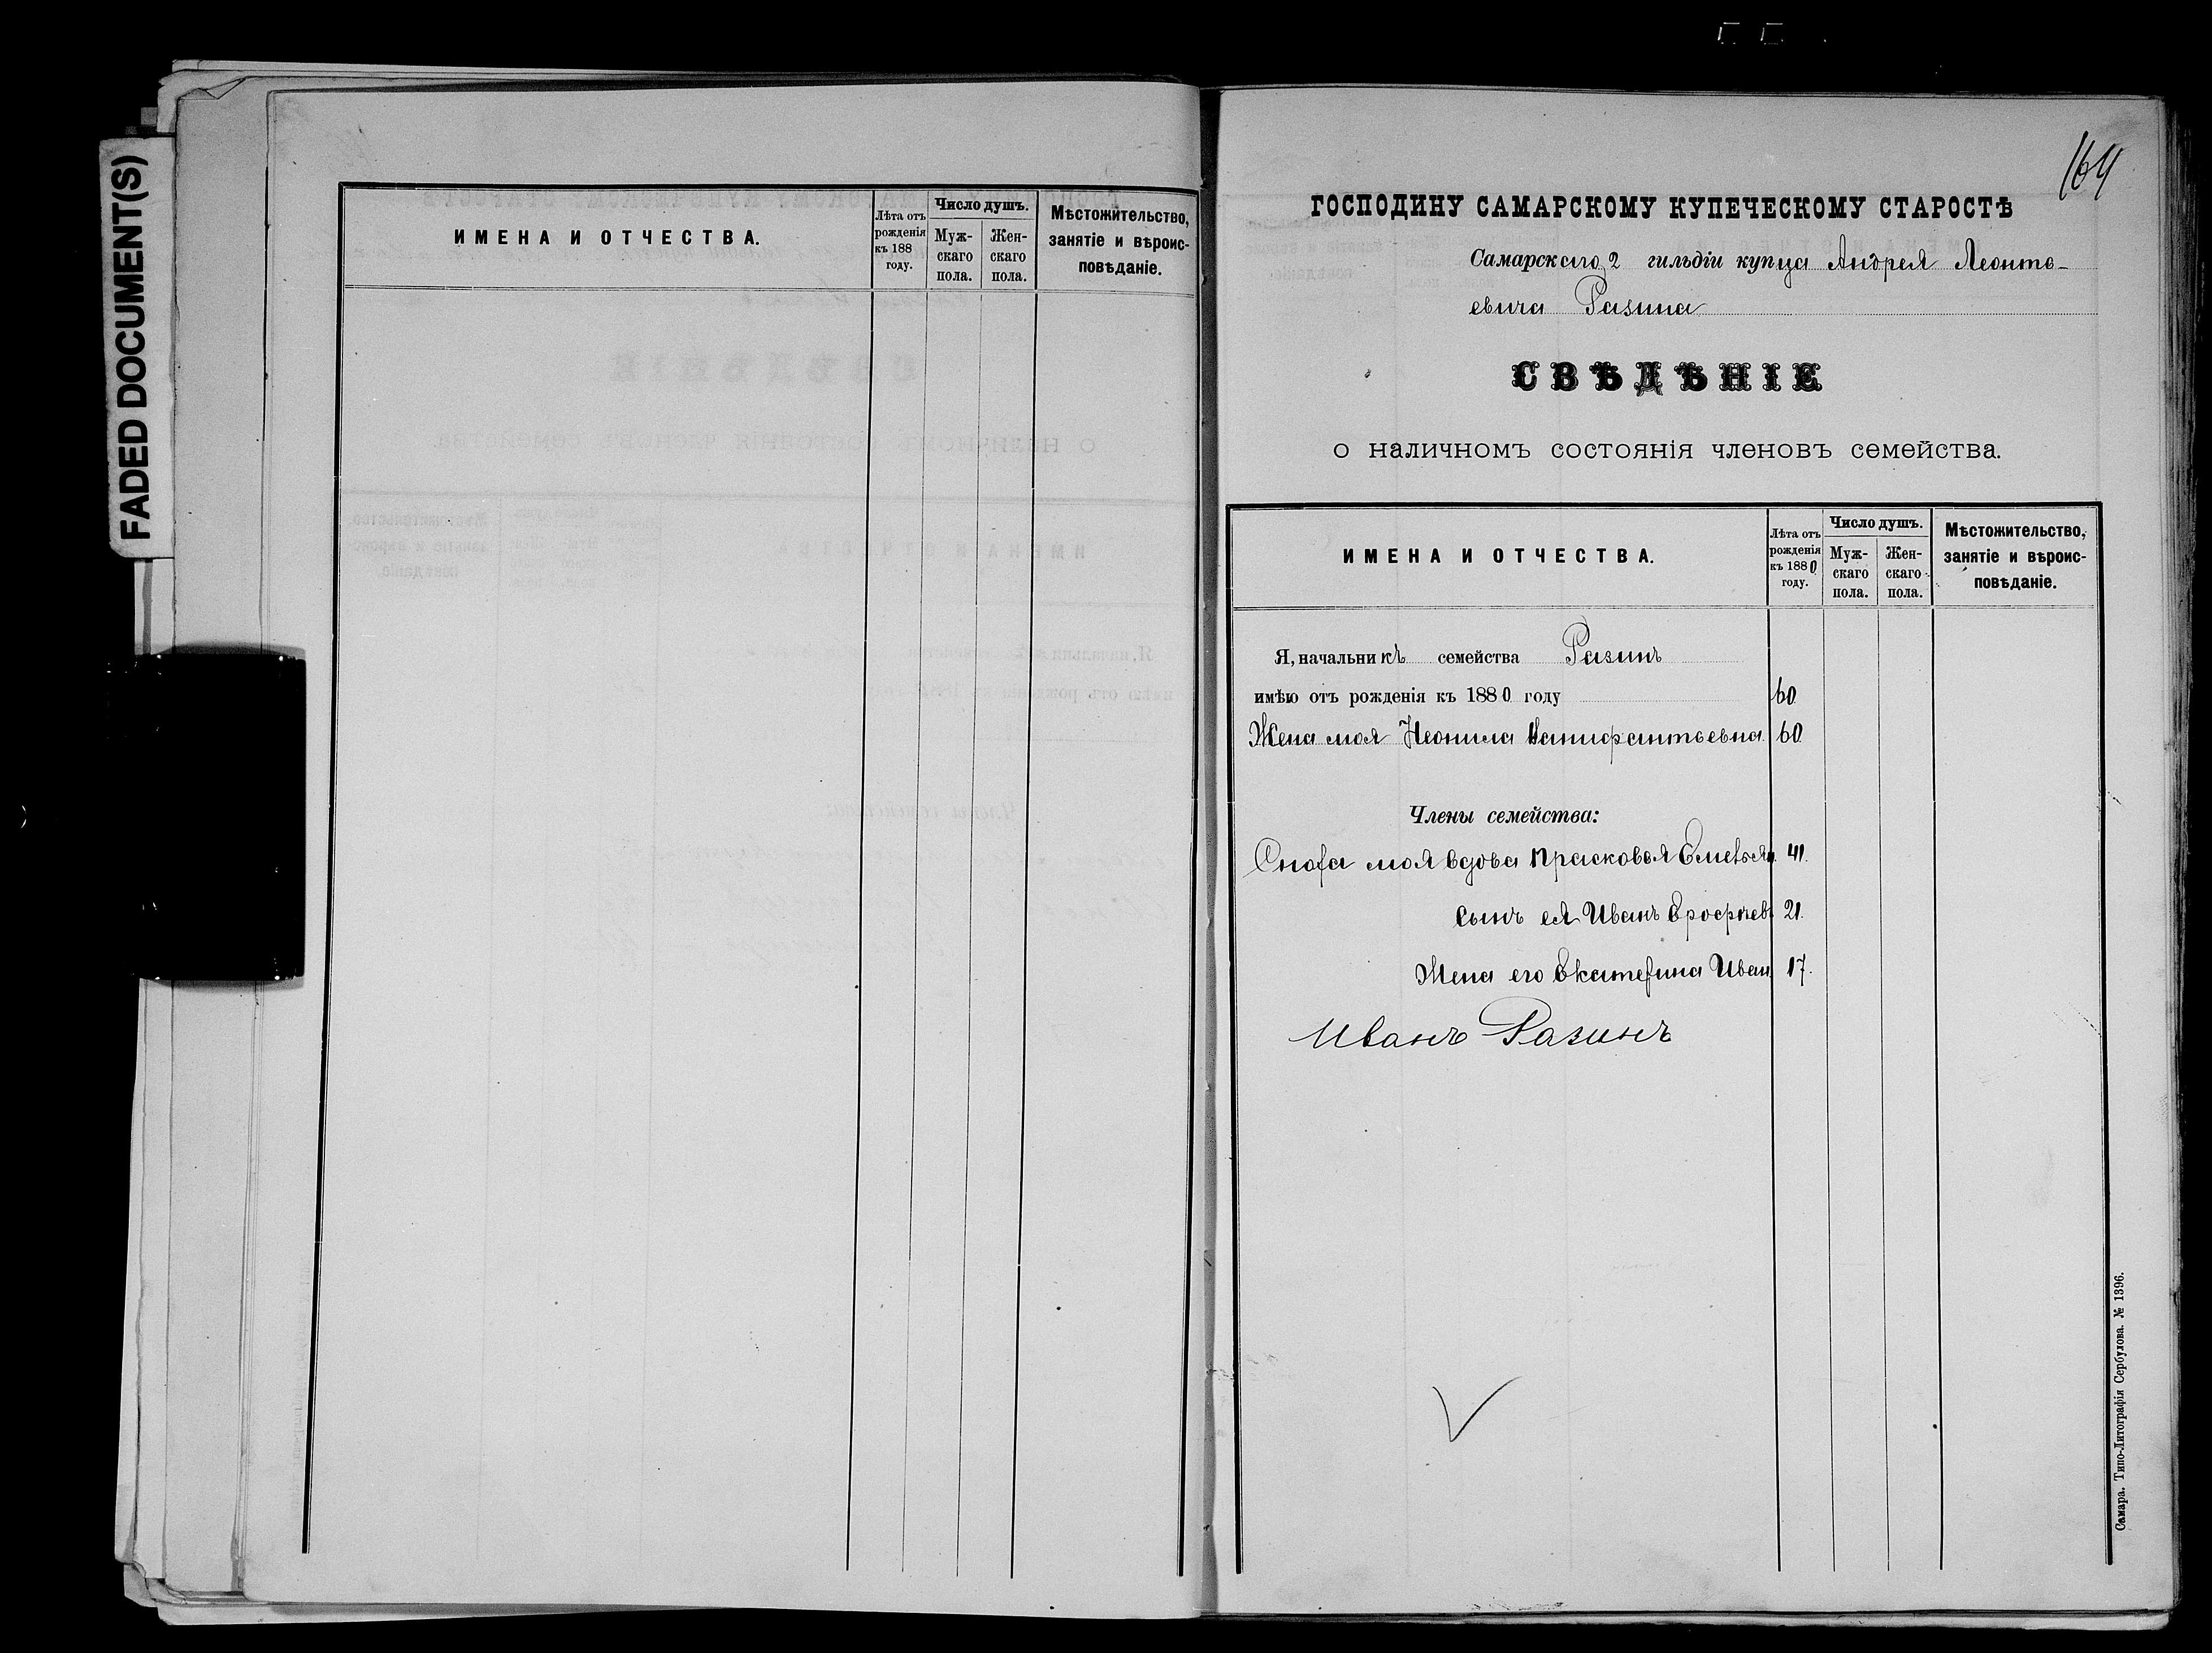 FADED DOCUMENT(S)
ИМЕНА И ОТЧЕСТВА.
Лѣта отъ рожденія къ 188 году.
Число душъ.
Мужскаго пола.
Женскаго пола.
Мѣстожительство, занятіе и вѣроисповѣданіе.
164
ГОСПОДИНУ САМАРСКОМУ КУПЕЧЕСКОМУ СТАРОСТѢ
Самарскаго 2 гильдіи купца Андрея Леонть-
евича Разина
СВѢДѢНІЕ
о наличномъ состоянія членовъ семейства.
ИМЕНА И ОТЧЕСТВА.
Лѣта отъ рожденія къ 1880 году.
Число душъ.
Муж-скаго пола.
Жен-скаго пола.
Мѣстожительство, занятіе и вѣроис-повѣданіе.
Я, начальникъ семейства Разинъ
имѣю отъ рожденія къ 1880 году 60
Жена моя Неонила 60
Члены семейства:
Сноха моя вдова Прасковья Емельян. 41.
Сынъ ея Иванъ Ерофѣев. 21.
Жена его Екатерина Иван. 17.
Иванъ Разинъ
Самара. Типо-Литографія Сербулова. № 1396.